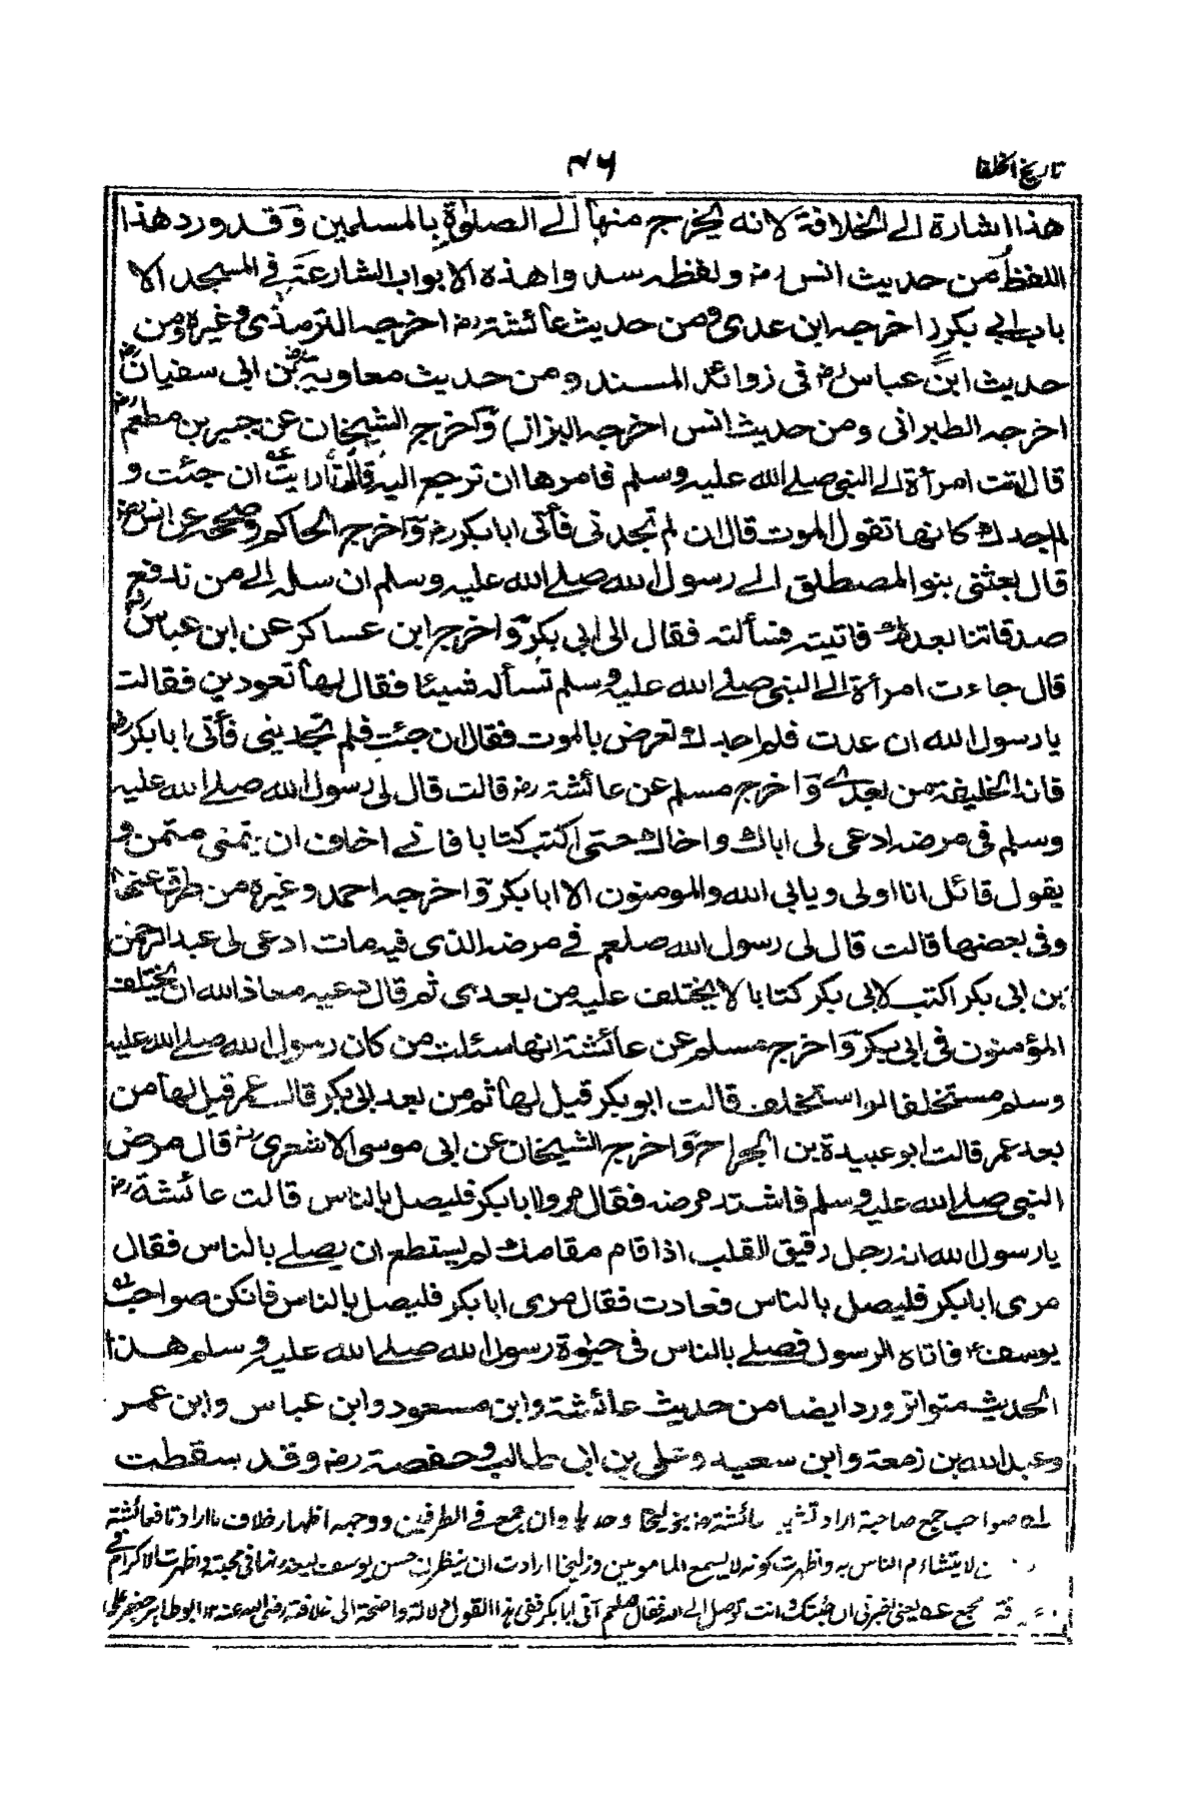 تاریخ الخلفا
۴۶
هذا اشارة الے الخلافة لانه یخرج منها الے الصلوٰة بالمسلمین وقد ورد هذا
اللفظ من حدیث انس رض ولفظه سدوا هذه الابواب الشارعة فی المسجد الا
باب ابی بکر اخرجه ابن عدی ومن حدیث عائشة رض اخرجه الترمذی وغیره ومن
حدیث ابن عباس رض فی زوائد المسند ومن حدیث معاویة بن ابی سفیان رض
اخرجه الطبرانی ومن حدیث انس اخرجه البزاز) واخرج الشیخان عن جبیر بن مطعم رض
قال اتت امرأة الے النبی صلے الله علیه وسلم فامرها ان ترجع الیه قالت أرایت ان جئت و
لم اجدك کانها تقول الموت قال ان لم تجدنی فأتی ابابکر رض واخرج الحاکم وصححه عن انس رض
قال بعثنی بنو المصطلق الے رسول الله صلے الله علیه وسلم ان سله الے من ندفع
صدقاتنا بعدك فاتیته فسألته فقال الی ابی بکر واخرج ابن عساکر عن ابن عباس رض
قال جاءت امرأة الے النبی صلے الله علیه وسلم تسأله شیئا فقال لها تعودین فقالت
یا رسول الله ان عدت فلم اجدك تعرض بالموت فقال ان جئت فلم تجدینی فأتی ابابکر رض
فانه الخلیفة من بعدے واخرج مسلم عن عائشة رض قالت قال لی رسول الله صلے الله علیه
وسلم فی مرضه ادعی لی اباك واخاك حتی اکتب کتابا فانے اخاف ان یتمنی متمن و
یقول قائل انا اولی ویابی الله والمومنون الا ابابکر واخرجه احمد وغیره من طرق عنها
وفی بعضها قالت قال لی رسول الله صلعم فے مرضه الذی فیه مات ادعی لی عبد الرحمن
بن ابی بکر اکتب لابی بکر کتابا لا یختلف علیه من بعدی ثم قال دعیه معاذ الله ان یختلف
المؤمنون فی ابی بکر واخرج مسلم عن عائشة انها سئلت من کان رسول الله صلے الله علیه
وسلم مستخلفا لو استخلف قالت ابو بکر قیل لها ثم من بعد ابی بکر قالت عمر قیل لها من
بعد عمر قالت ابو عبیدة بن الجراح واخرج الشیخان عن ابی موسی الاشعری رض قال مرض
النبی صلے الله علیه وسلم فاشتد مرضه فقال مروا ابابکر فلیصل بالناس قالت عائشة رض
یا رسول الله انه رجل رقیق القلب اذا قام مقامك لم یستطع ان یصلے بالناس فقال
مری ابابکر فلیصل بالناس فعادت فقال مری ابابکر فلیصل بالناس فانکن صواحب
یوسف فاتاه الرسول فصلے بالناس فی حیٰوة رسول الله صلے الله علیه وسلم هذا
الحدیث متواتر ورد ایضا من حدیث عائشة وابن مسعود وابن عباس وابن عمر
وعبد الله بن زمعة وابن سعید وعلی بن ابی طالب وحفصة رض وقد سقطت
له صواحب جمع صاحبة اراد عائشة رض بزلیخا وحدها وان جمع فی الطرفین ووجهه اظهار خلاف ما ارادتا فعائشة
لا یتشاءم الناس به واظهرت کونه لا یسمع المامومین وزلیخا ارادت ان ینظرن حسن یوسف لیعذرنها فی محبته واظهرت الاکرام فی
مجمع عه یعنی اخبرنی ان جئتك انت توصل الے الله فقال صلعم آتی ابا بکر ففی هذا القول دلالة واضحة الی خلافة رضی الله عنه ۱۲ ابو طاهر